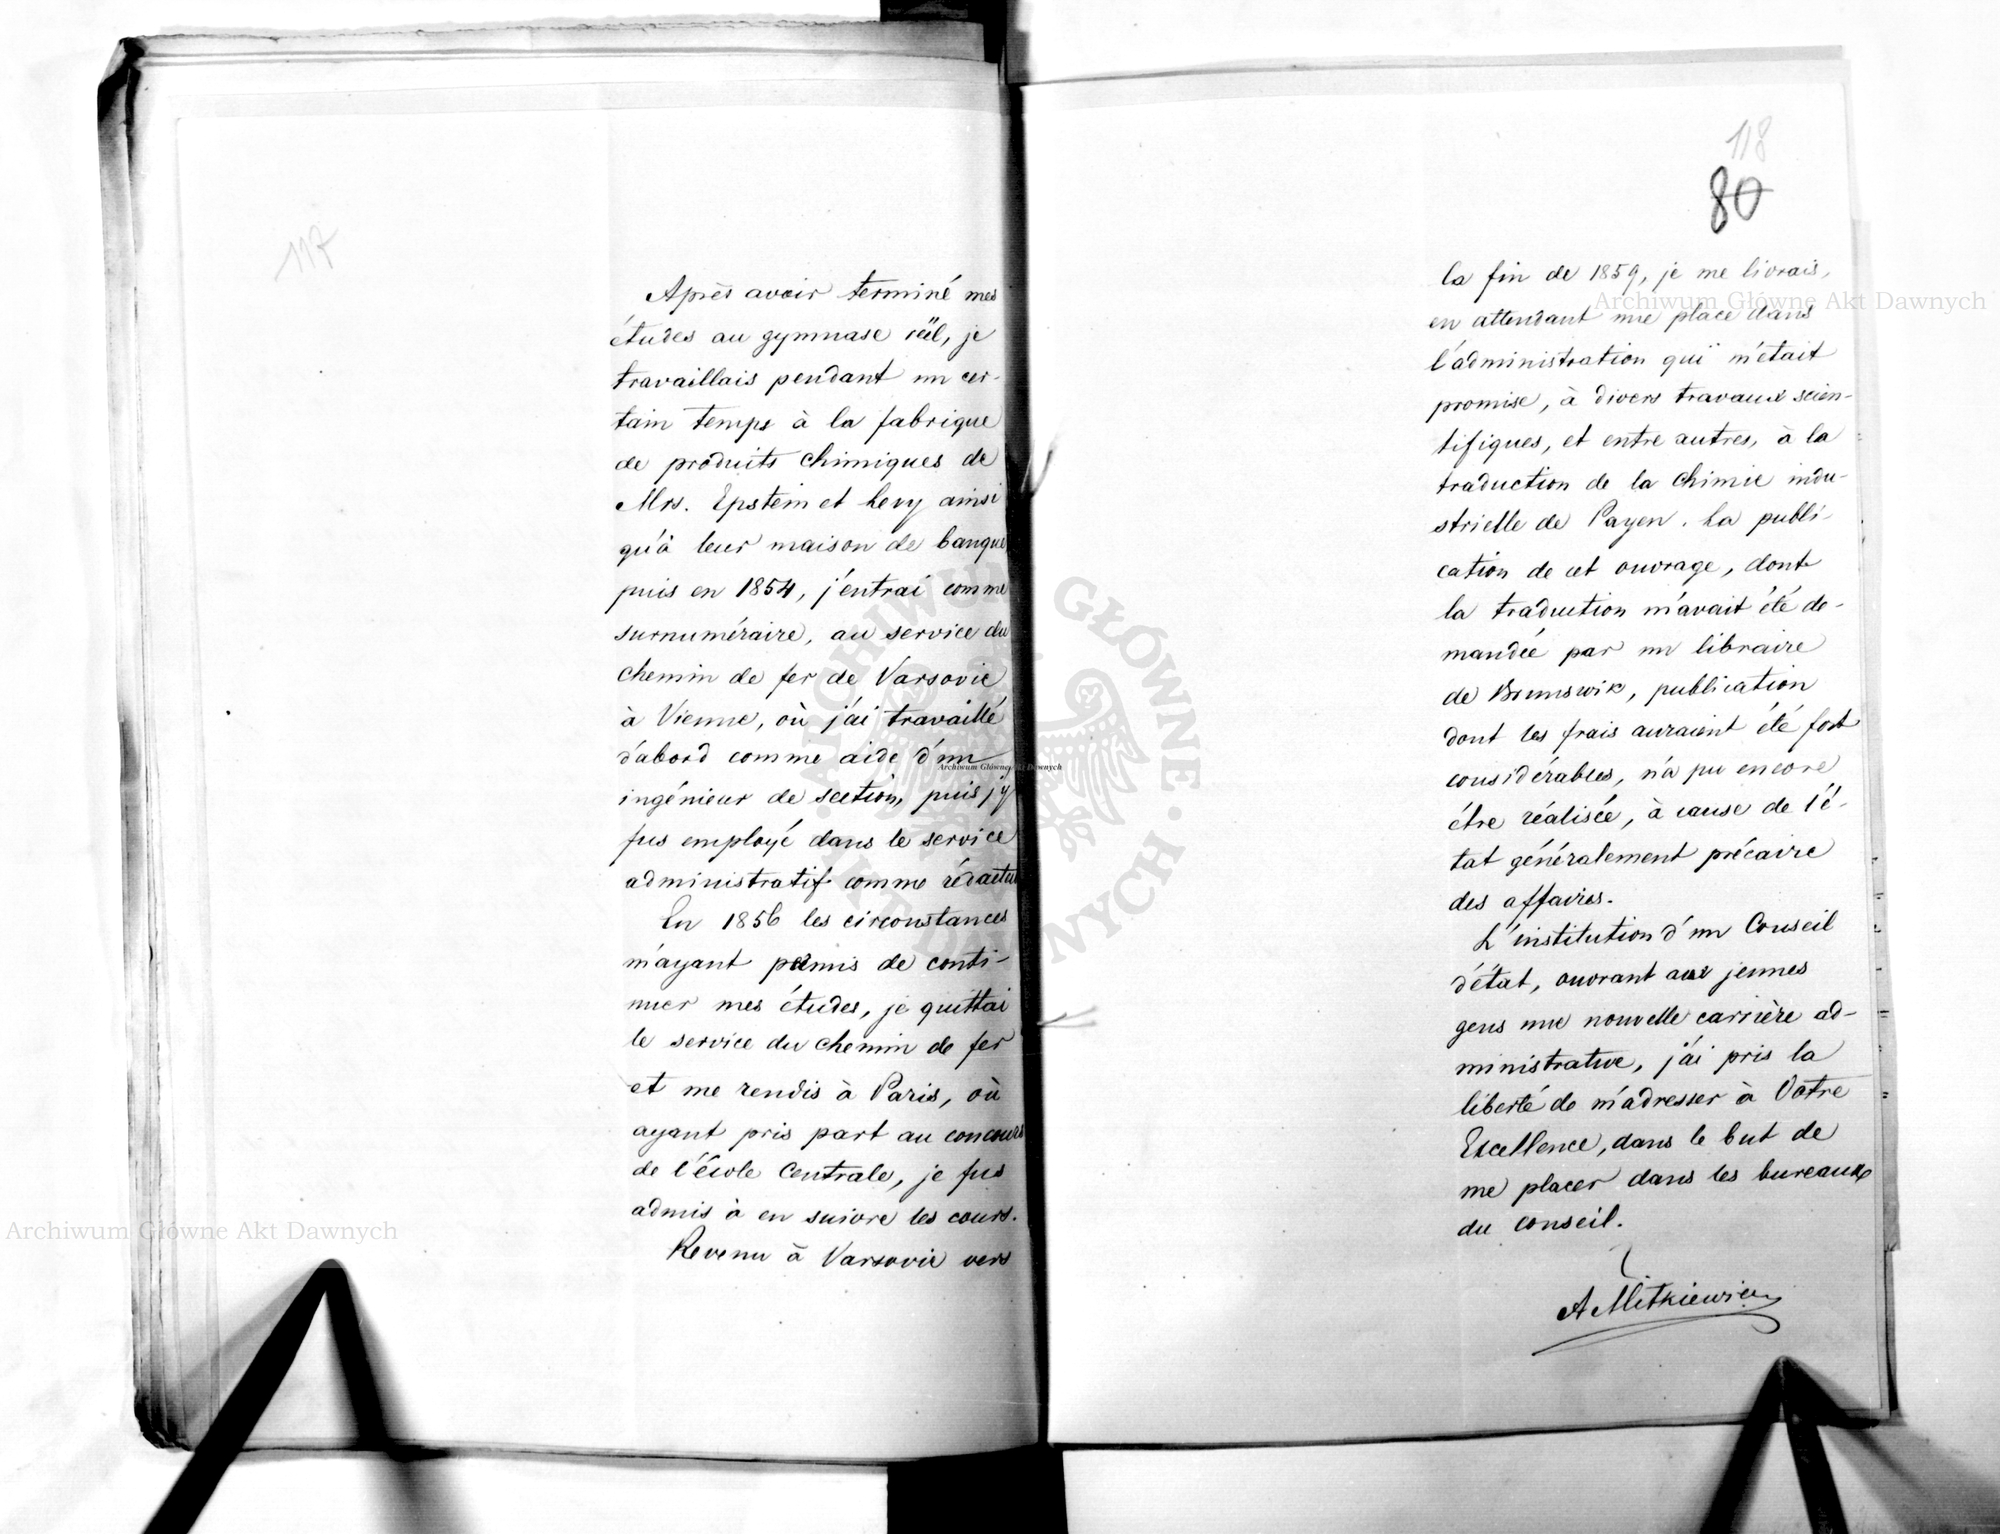 117
Après avoir terminé mes
études au gymnase réél, je
travaillais pendant un cer-
tain temps à la fabrique
de produits chimiques de
Mrs. Epstein et Levy ainsi
qu'à leur maison de banque
puis en 1854, j'entrai comme
surnuméraire, au service du
chemin de fer de Varsovie
à Vienne, où j'ai travaillé
d'abord comme aide d'un
ingénieur de section, puis j'y
fus employé dans le service
administratif comme rédacteur
En 1856 les circonstances
m'ayant permis de conti-
nuer mes études, je quittai
le service du chemin de fer
et me rendis à Paris, où
ayant pris part au concours
de l'école Centrale, je fus
admis à en suivre les cours.
Revenu à Varsovie vers
118
80
la fin de 1859, je me livrais,
en attendant une place dans
l'administration qui m'était
promise, à divers travaux scien-
tifiques, et entre autres, à la
traduction de la Chimie indu-
strielle de Payen. La publi-
cation de cet ouvrage, dont
la traduction m'avait été de-
mandée par un libraire
de Brunswik, publication
dont les frais auraient été fort
considérables, n'a pu encore
être réalisée, à cause de l'é-
tat généralement précaire
des affaires.
L'institution d'un Conseil
d'état, ouvrant aux jeunes
gens une nouvelle carrière ad-
ministrative, j'ai pris la
liberté de m'adresser à Votre
Excellence, dans le but de
me placer dans les bureaux
du conseil.
A Mitkiewicz
Archiwum Główne Akt Dawnych
Archiwum Główne Akt Dawnych
Archiwum Główne Akt Dawnych